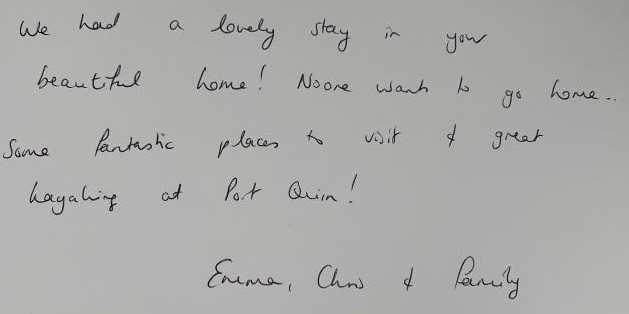 We had a lovely stay in your
beautiful home! Noone wants to go home..
Some fantastic places to visit & great
kayaking at Port Quin!
Emma, Chris & family